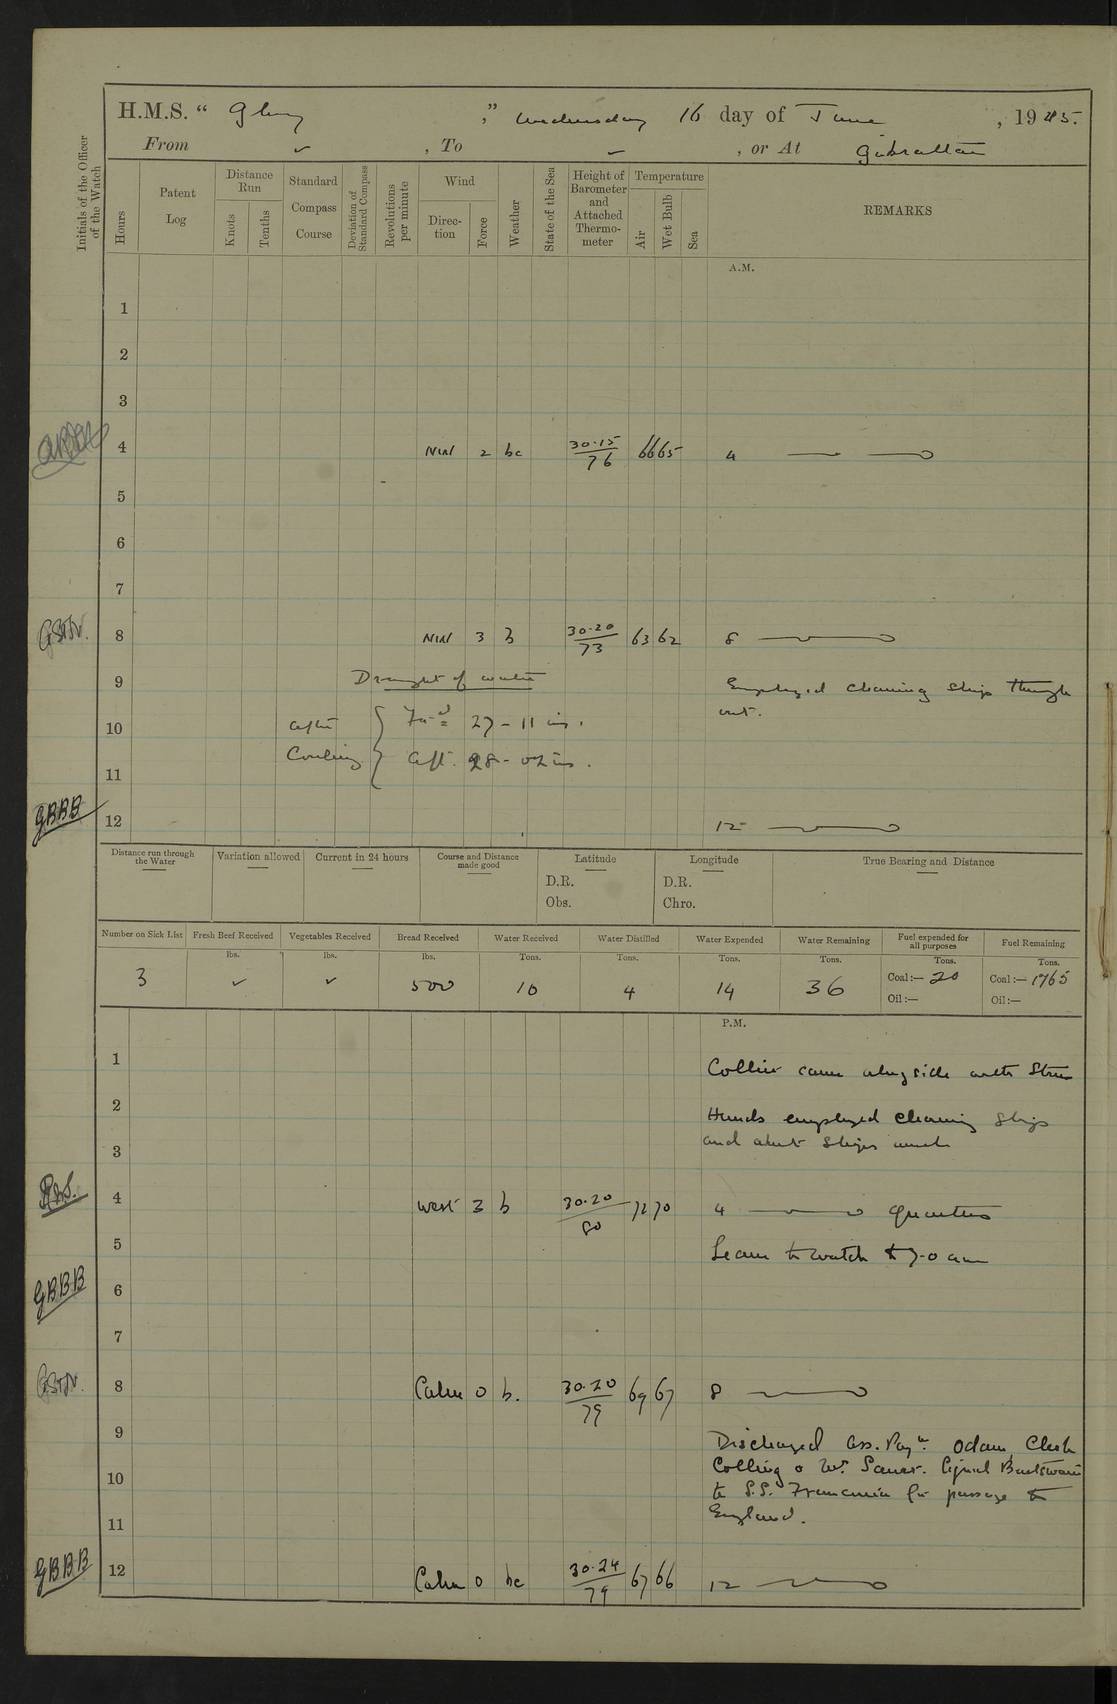 H.M.S. " Glory ," Wednesday 16 day of June , 1915.
From ✓ , To ✓ , or At Gibraltar
Initials of the Officer of the Watch
Hours
Patent Log
Distance Run
Knots
Tenths
Standard Compass Course
Deviation of Standard Compass
Revolutions per minute
Wind
Direction
Force
Weather
State of the Sea
Height of Barometer and Attached Thermometer
Temperature
Air
Wet Bulb
Sea
REMARKS
A.M.
1
2
3
4 NW 2 bc 30.15/76 66 65 4
5
6
7
GSTN. 8 NW 3 b 30.20/73 63 62 8
9 Draught of water Employed cleaning ship through
out.
10 after For'd 27 - 11 ins.
11 Coaling aft. 28 - 02 ins.
GBBB 12 12
Distance run through the Water
Variation allowed
Current in 24 hours
Course and Distance made good
Latitude
D.R.
Obs.
Longitude
D.R.
Chro.
True Bearing and Distance
Number on Sick List
3
Fresh Beef Received
lbs.
✓
Vegetables Received
lbs.
✓
Bread Received
lbs.
500
Water Received
Tons.
10
Water Distilled
Tons.
4
Water Expended
Tons.
14
Water Remaining
Tons.
36
Fuel expended for all purposes
Tons.
Coal:— 20
Oil:—
Fuel Remaining
Tons.
Coal:— 1765
Oil:—
P.M.
1 Collier came alongside with
2 Hands employed cleaning ship
and about ships work
3
4 West 3 b 30.20/80 72 70 4 Quarters
5 Leave to watch to 7-0 am
GBBB 6
7
GSTN. 8 Calm 0 b. 30.20/79 69 67 8
9 Discharged Ass. Paymr. Odam, Clerk
Colling & Mr. Signal Boatswain
10 to S.S. Franconia for passage to
11 England.
GBBB 12 Calm 0 bc 30.24/79 67 66 12